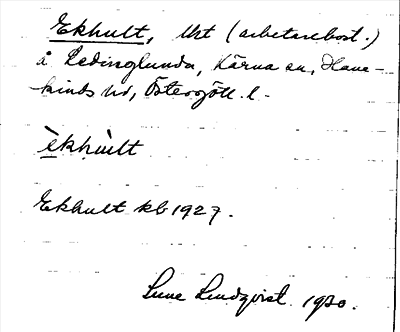 Ekhult, lht (arbetarebost.)
å Ledinglunda, Kärna sn, Hane-
kinds hd, Östergötl. l.
èkhùlt
Ekhult kb 1927.
Sune Lindqvist 1930.